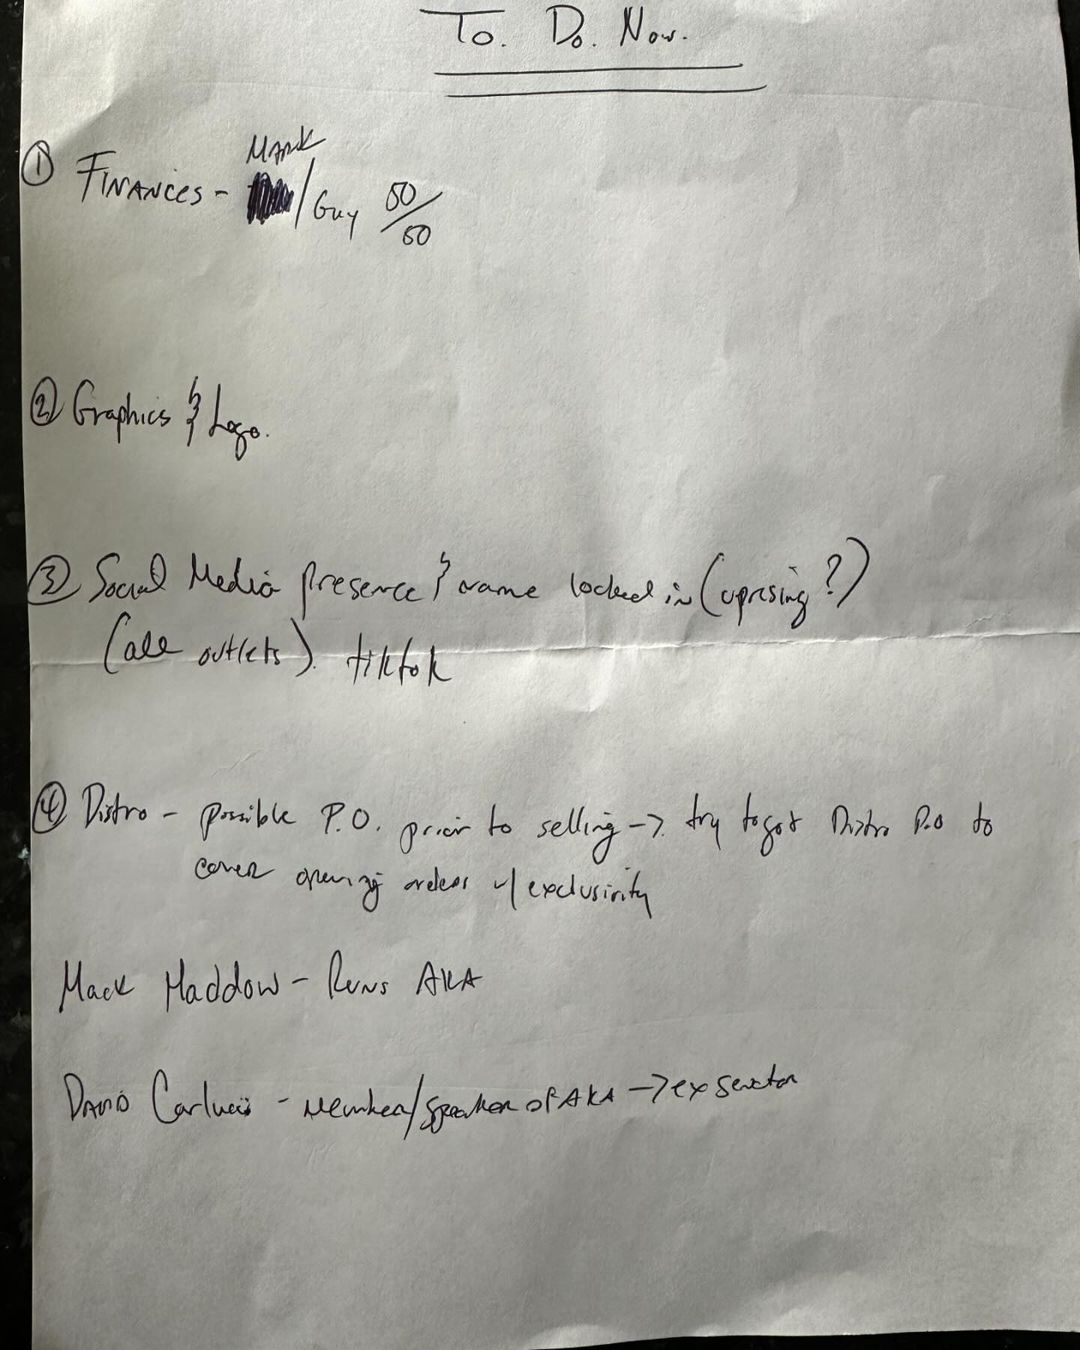 To. Do. Now.
Mark
① Finances - /Guy 50/50
② Graphics & Logo.
③ Social Media presence & name locked in (uprising?)
(all outlets). tiktok
④ Distro - possible P.O. prior to selling -> try to get Distro P.O to
cover opening orders w/exclusivity
Mack Haddow - Runs AKA
David Carlucci - Member/Speaker of AKA -> ex senator